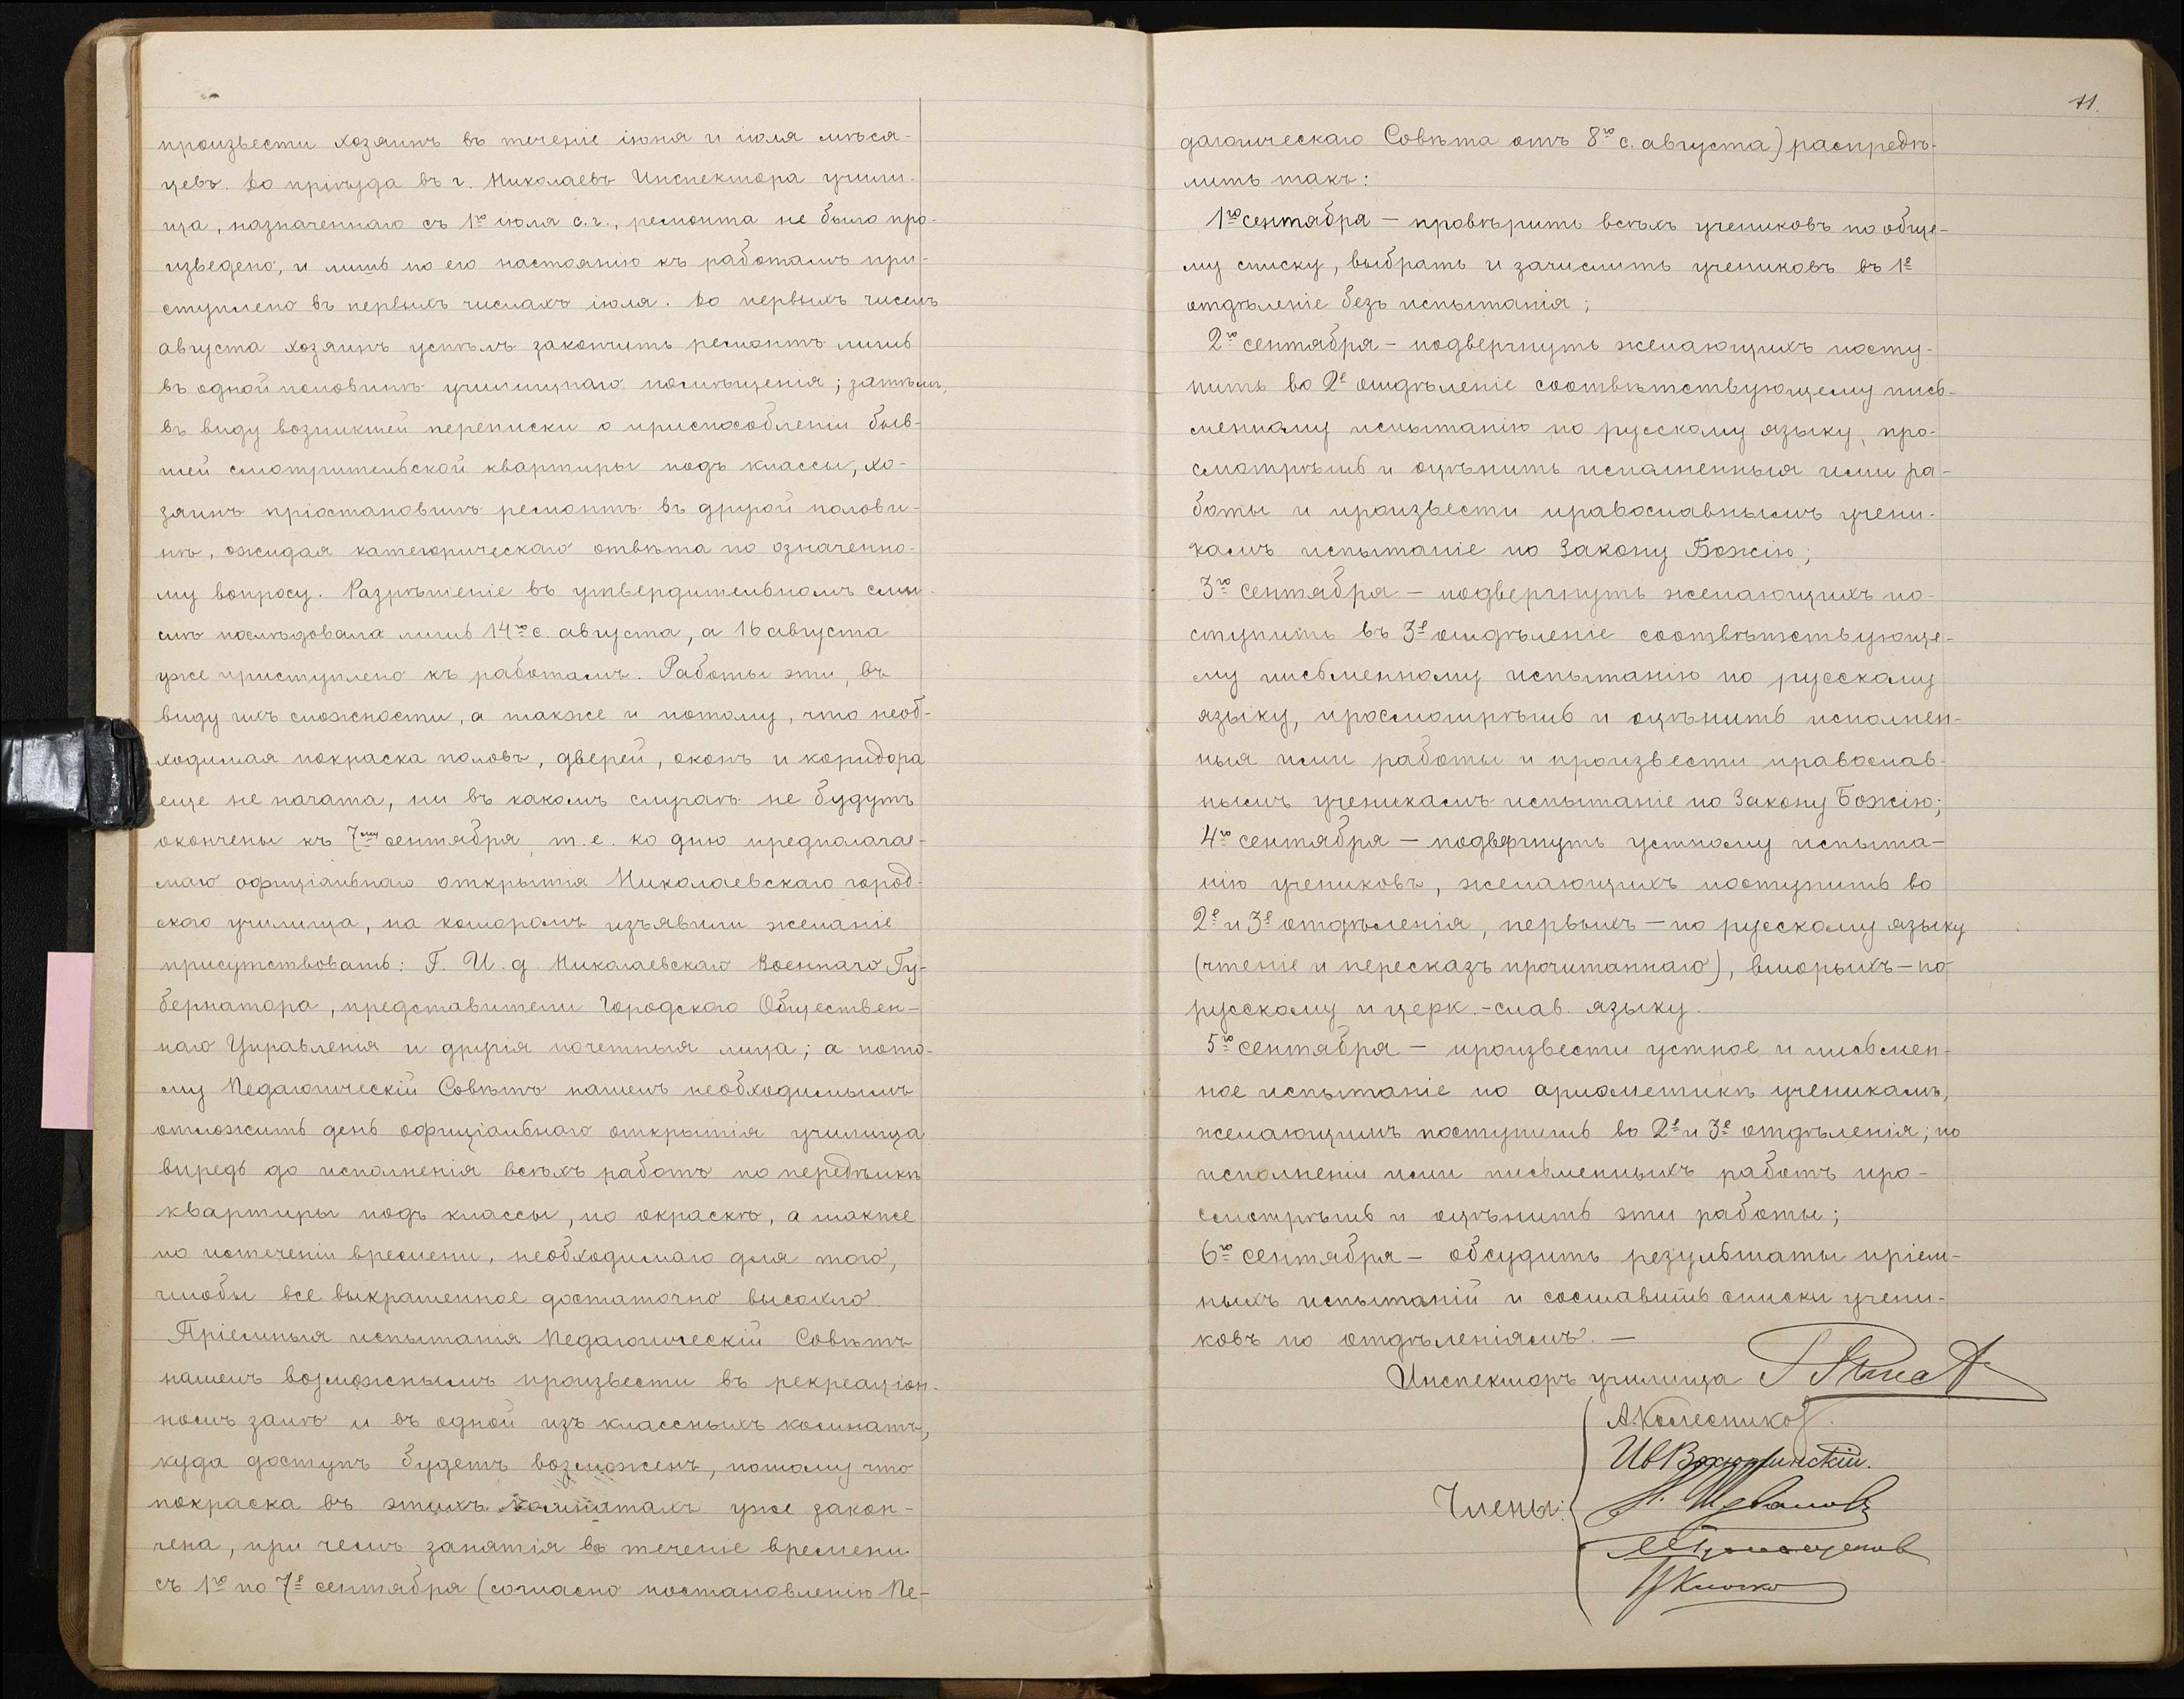 произвести хозяинъ въ теченіе іюня и іюля мѣся-
цевъ. До пріѣзда въ г. Николаевъ Инспектора учили-
ща, назначеннаго съ 1го іюля с. г., ремонта не было про-
изведено, и лишь по его настоянію къ работамъ при-
ступлено въ первыхъ числахъ іюля. До первыхъ чиселъ
августа хозяинъ успѣлъ закончить ремонтъ лишь
въ одной половинѣ училищнаго помѣщенія; затѣмъ,
въ виду возникшей переписки о приспособленіи быв-
шей смотрительской квартиры подъ классы, хо-
зяинъ пріостановилъ ремонтъ въ другой полови-
нѣ, ожидая категорическаго отвѣта по означенно-
му вопросу. Разрѣшеніе въ утвердительномъ смы-
слѣ послѣдовала лишь 14го с. августа, а 16 августа
уже приступлено къ работамъ. Работы эти, въ
виду ихъ сложности, а также и потому, что необ-
ходимая покраска половъ, дверей, оконъ и коридора
еще не начата, ни въ какомъ случаѣ не будутъ
окончены къ 7му сентября, т. е. ко дню предполагае-
маго оффиціальнаго открытія Николаевскаго город-
ского училища, на которомъ изъявили желаніе
присутствовать: Г. И. д. Николаевскаго Военнаго Гу-
бернатора, представители Городского Обществен-
наго Управленія и другія почетныя лица; а пото-
му Педагогическій Совѣтъ нашелъ необходимымъ
отложить день оффиціальнаго открытія училища
впредь до исполненія всѣхъ работъ по передѣлкѣ
квартиры подъ классы, по окраскѣ, а также
по истеченіи времени, необходимаго для того,
чтобы все выкрашенное достаточно высохло.
Пріемныя испытанія Педагогическій Совѣтъ
нашелъ возможнымъ произвести въ рекреаціон-
номъ залѣ и въ одной изъ классныхъ комнатъ,
куда доступъ будетъ возможенъ, потому что
покраска въ этихъ комнатахъ уже закон-
чена, при чемъ занятія въ теченіе времени
съ 1го по 7е сентября (согласно постановленію Пе-
11.
дагогическаго Совѣта отъ 8го с. августа) распредѣ-
лить такъ:
1го сентября – провѣрить всѣхъ учениковъ по обще-
му списку, выбрать и зачислить учениковъ въ 1е
отдѣленіе безъ испытанія;
2го сентября – подвергнуть желающихъ посту-
пить во 2е отдѣленіе соотвѣтствующему пись-
менному испытанію по русскому языку, про-
смотрѣть и оцѣнить исполненныя ими ра-
боты и произвести православнымъ учени-
камъ испытаніе по Закону Божію;
3го сентября – подвергнуть желающихъ по-
ступить въ 3е отдѣленіе соотвѣтствующе-
му письменному испытанію по русскому
языку, просмотрѣть и оцѣнить исполнен-
ныя ими работы и произвести православ-
нымъ ученикамъ испытаніе по Закону Божію;
4го сентября – подвергнуть устному испыта-
нію учениковъ, желающихъ поступить во
2е и 3е отдѣленія, первыхъ – по русскому языку
(чтеніе и пересказъ прочитаннаго), вторыхъ – по
русскому и церк.-слав. языку.
5го сентября – произвести устное и письмен-
ное испытаніе по ариѳметикѣ ученикамъ,
желающимъ поступить во 2е и 3е отдѣленія; по
исполненіи ими письменныхъ работъ про-
смотрѣть и оцѣнить эти работы;
6го сентября – обсудить результаты пріем-
ныхъ испытаній и составить списки учени-
ковъ по отдѣленіямъ. –
Инспекторъ училища
А. Колесников.
Члены: